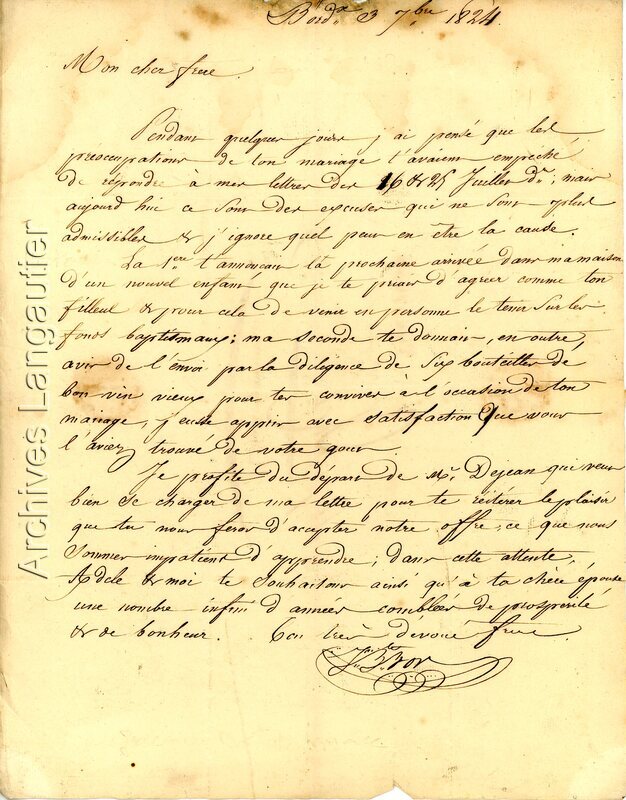 Bord.x 3 7bre 1824.
Mon cher frere
Pendant quelques jours, j'ai pensé que les
préoccupations de ton mariage t'avaient empeché
de répondre à mes lettres des 16 & 25 Juillet dr.; mais
aujourd'hui ce sont des excuses qui ne sont plus
admissibles & j'ignore quel peut en être la cause.
La 1ere t'annoncait la prochaine arrivée dans ma maison
d'un nouvel enfant que je te priais d'agréer comme ton
filleul & pour cela de venir en personne le tenir sur les
fonds baptismaux; ma seconde te donnait, en outre,
avis de l'envoi par la diligence de six bouteilles de
bon vin vieux pour tes convives à l'occasion de ton
mariage, j'eusse appris avec satisfaction que vous
l'aviez trouvé de votre gout.
Je profite du départ de Mr. Dejean qui veut
bien se charger de ma lettre pour te réitérer le plaisir
que tu nous feras d'accepter notre offre, ce que nous
sommes impatient d'apprendre; dans cette attente,
Adele & moi te souhaitons ainsi qu'à ta chère épouse
une nombre infini d'années comblées de prosperité
& de bonheur. Ton très dévoué frere
Archives Langautier